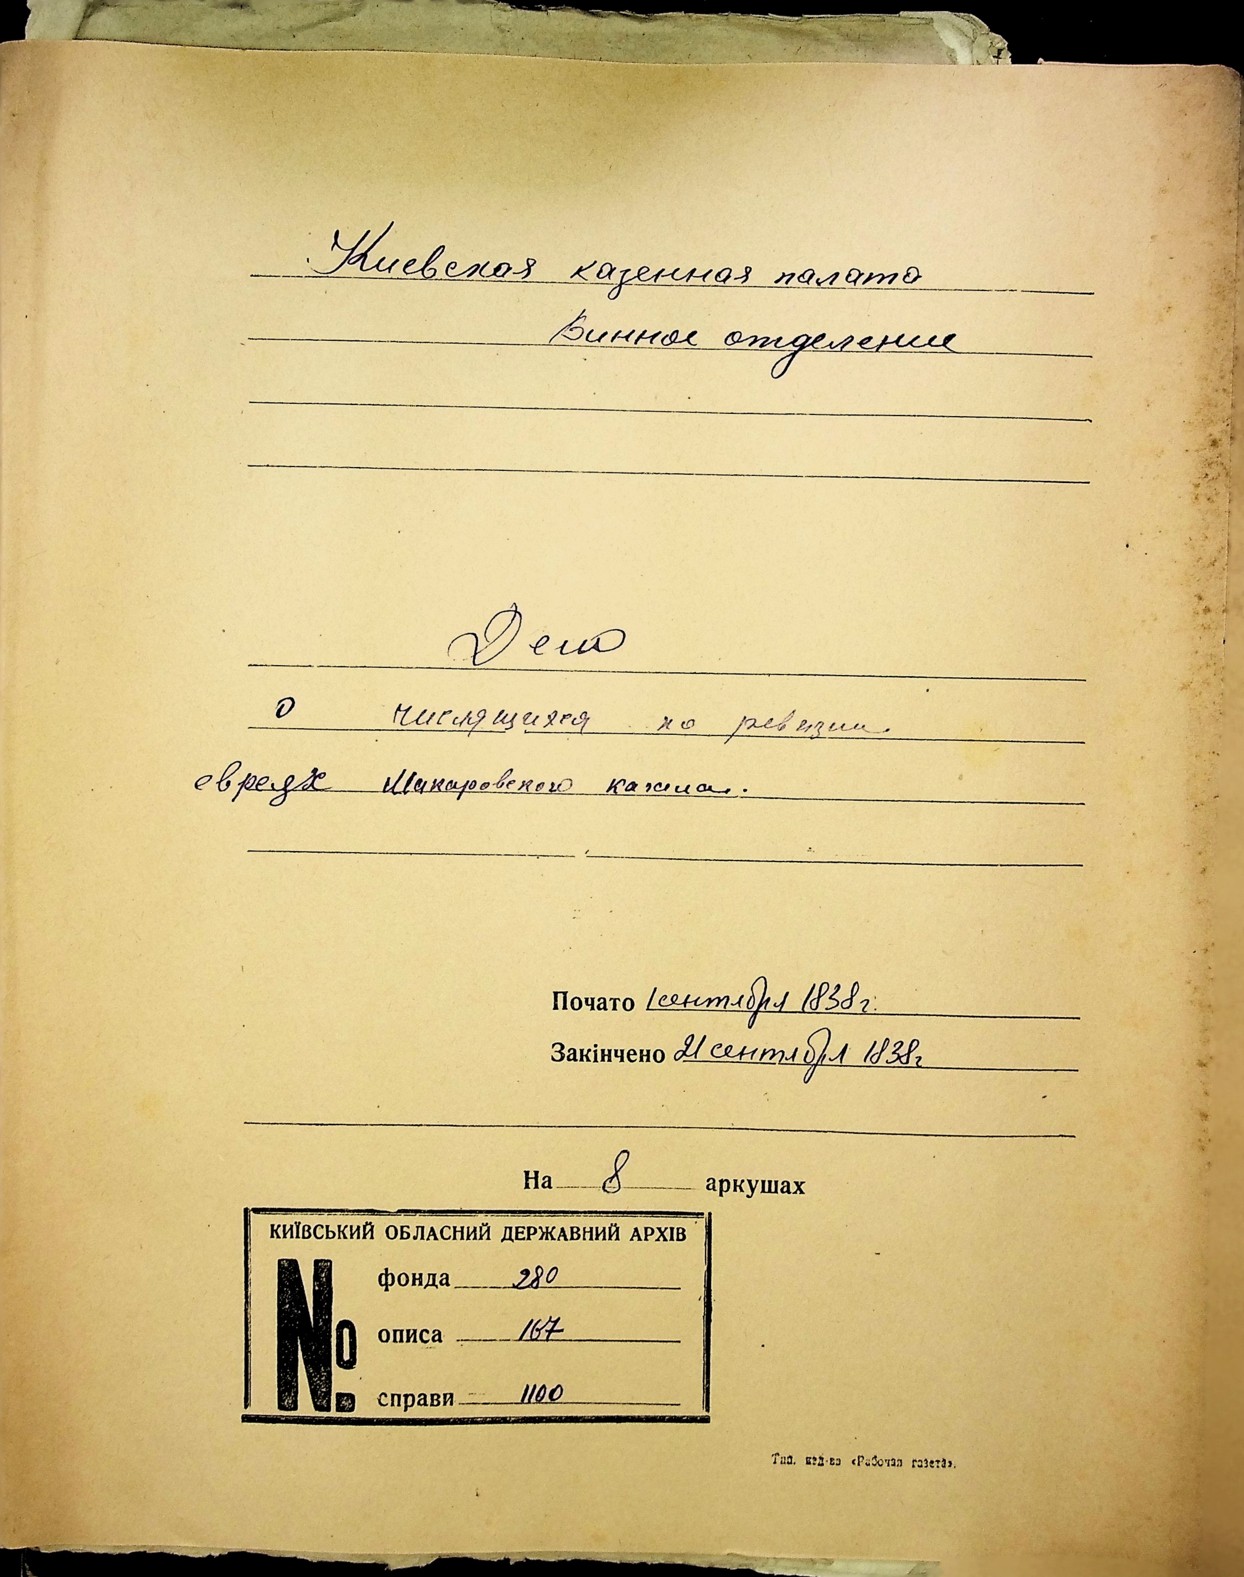 Киевская казенная палата
Винное отделение
Дело
о числящихся по ревизии
евреях Макаровского кагала.
Почато 1 сентября 1838 г.
Закінчено 21 сентября 1838 г
На 8 аркушах
КИЇВСЬКИЙ ОБЛАСНИЙ ДЕРЖАВНИЙ АРХІВ
№
фонда 280
описа 167
справи 1100
Тип. изд-ва «Рабочая газета».